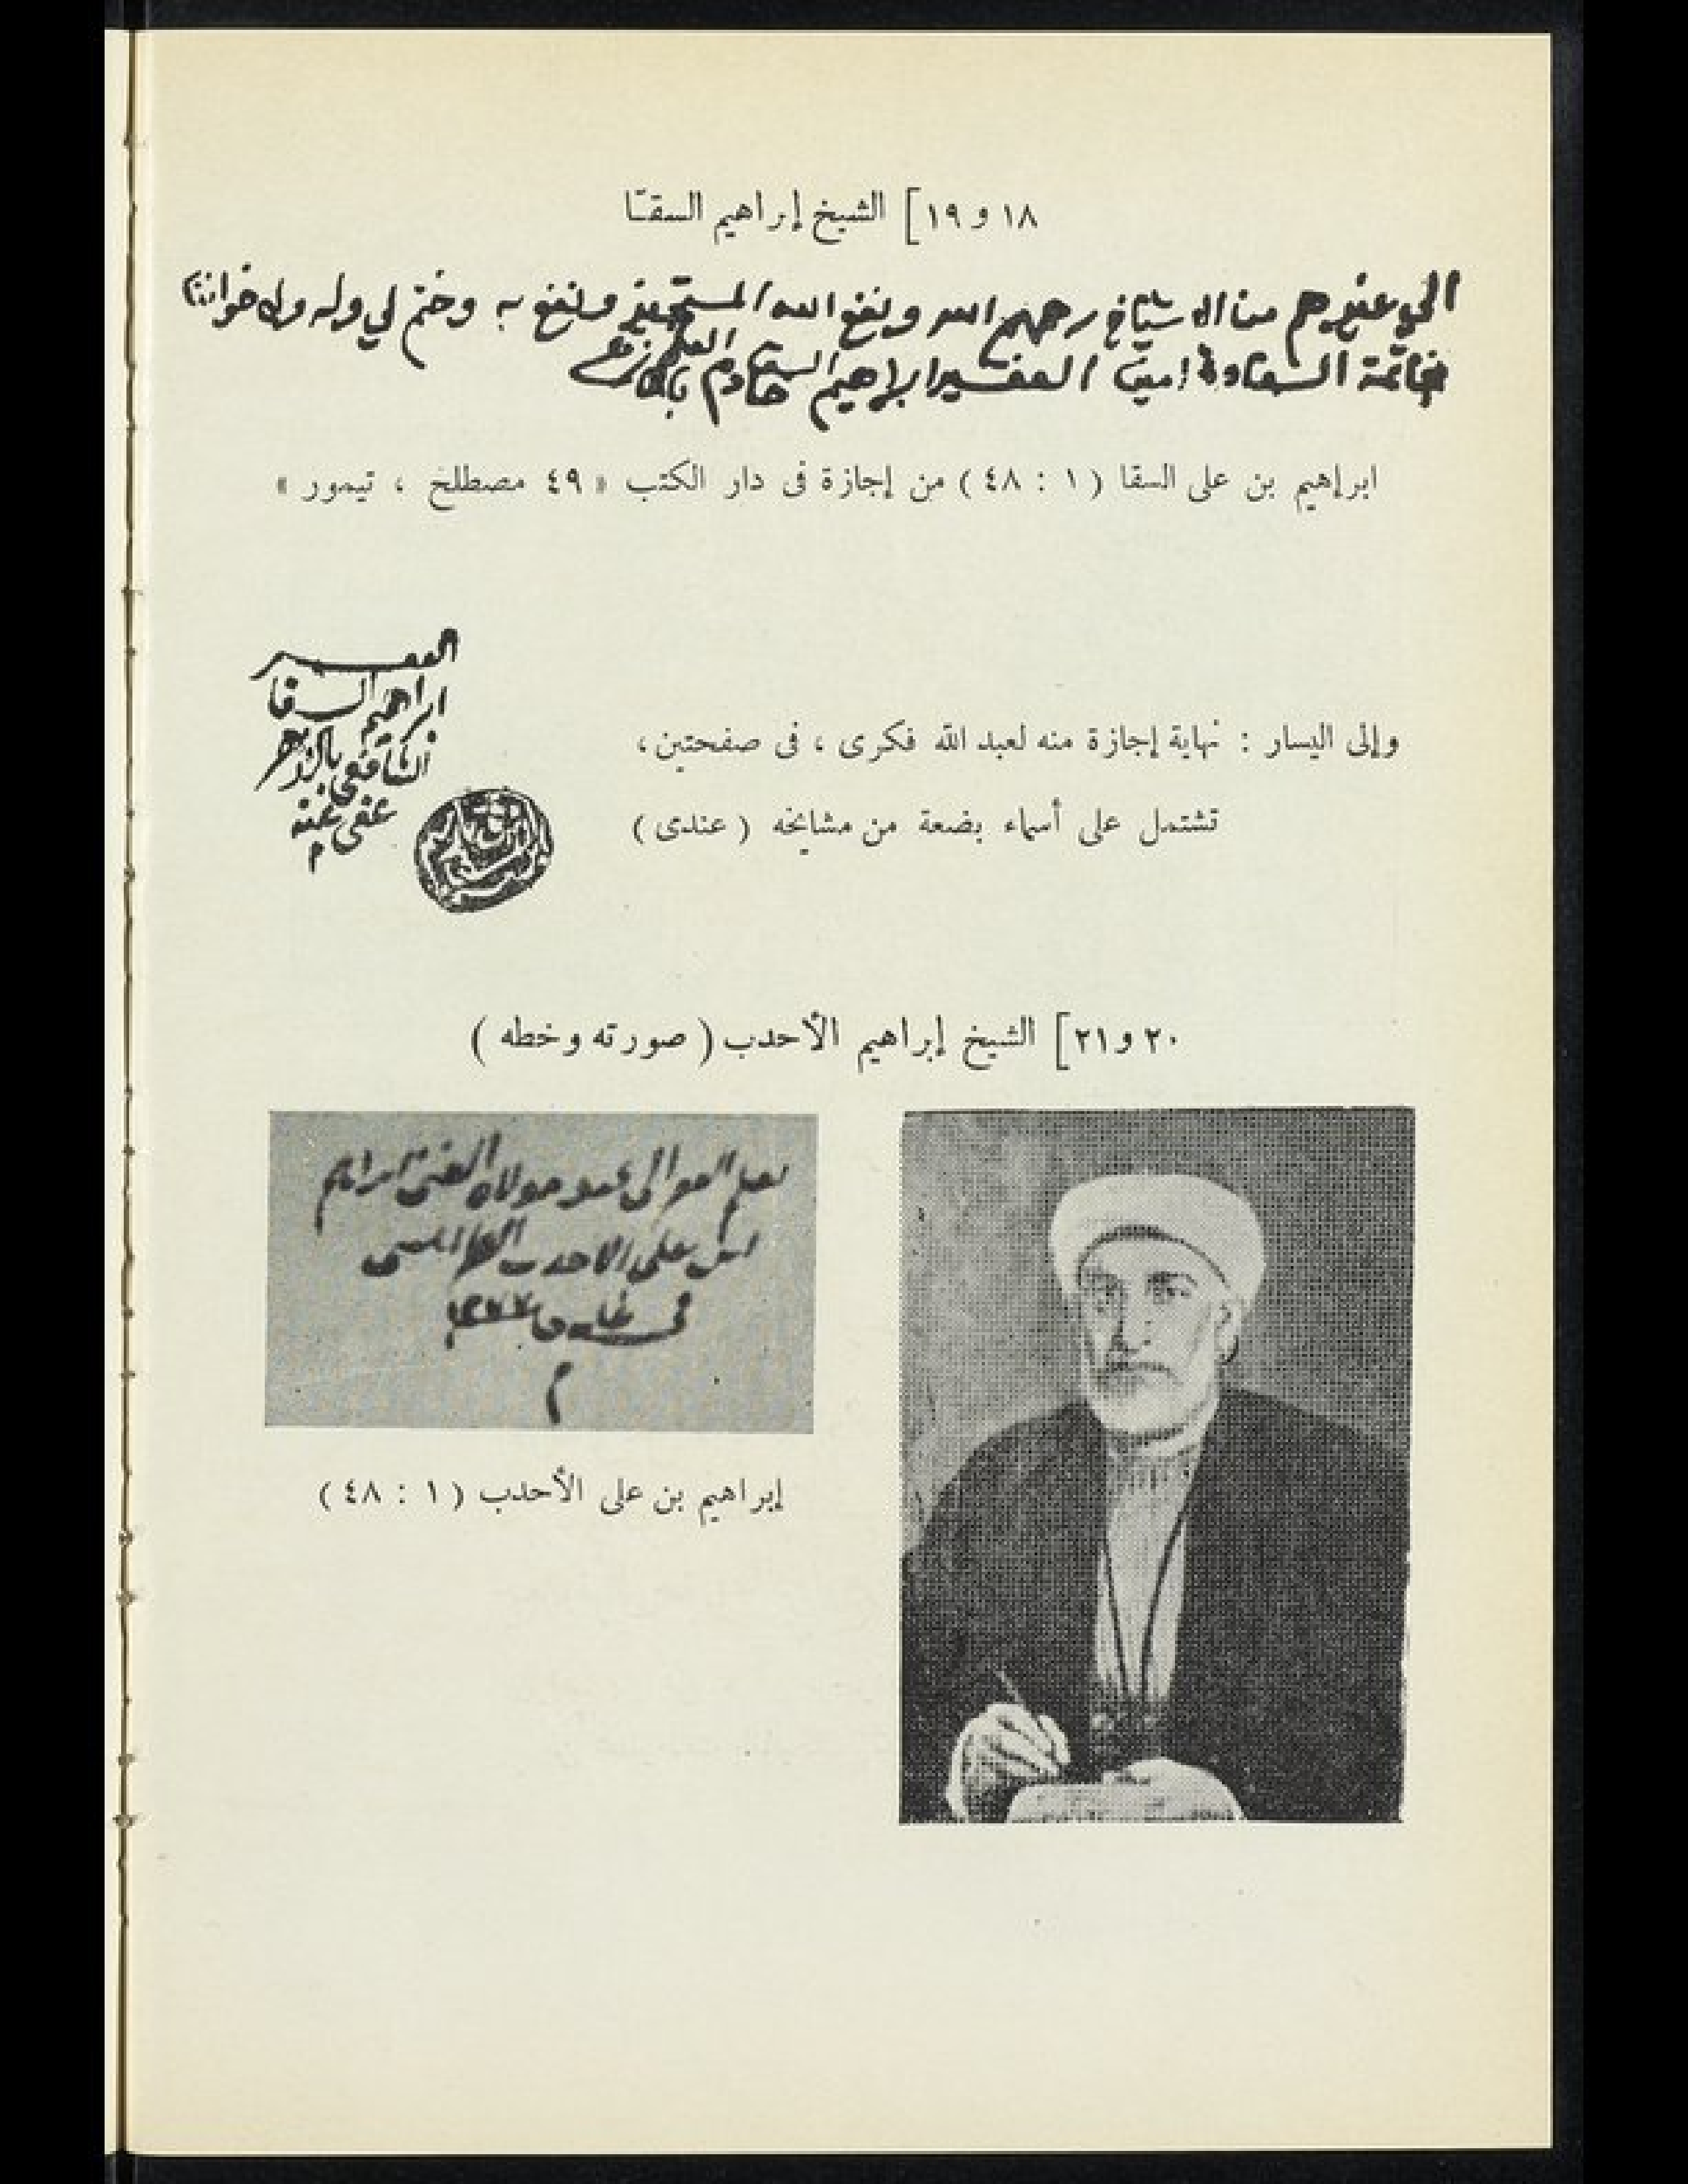 ١٨ و ١٩ ] الشيخ إبراهيم السقّا
الى غيرهم من الاشياخ رحمهم الله ونفع الله المستجيز ونفع به وختم لي وله ولاخواننا
خاتمة السعادة امين الفقير ابراهيم السقا خادم العلم بالازهر
ابرإهيم بن على السقا ( ١ : ٤٨ ) من إجازة فى دار الكتب « ٤٩ مصطلح ، تيمور »
الفقير
ابراهيم السقا
الشافعي بالازهر
عفى عنه
وإلى اليسار : نهاية إجازة منه لعبد الله فكرى ، فى صفحتين ،
تشتمل على أسماء بضعة من مشايخه ( عندى )
٢٠ و ٢١ ] الشيخ إبراهيم الأحدب ( صورته وخطه )
بقلم الفقير الى عبد مولاه الغنى ابراهيم
ابن على الاحدب الطرابلسى
فى
إبراهيم بن على الأحدب ( ١ : ٤٨ )